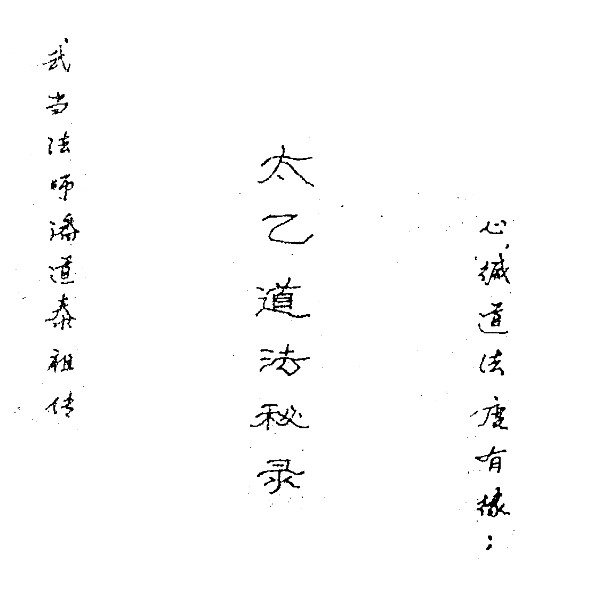 心缄道法度有缘；
太乙道法秘录
武当法师潘道泰祖传